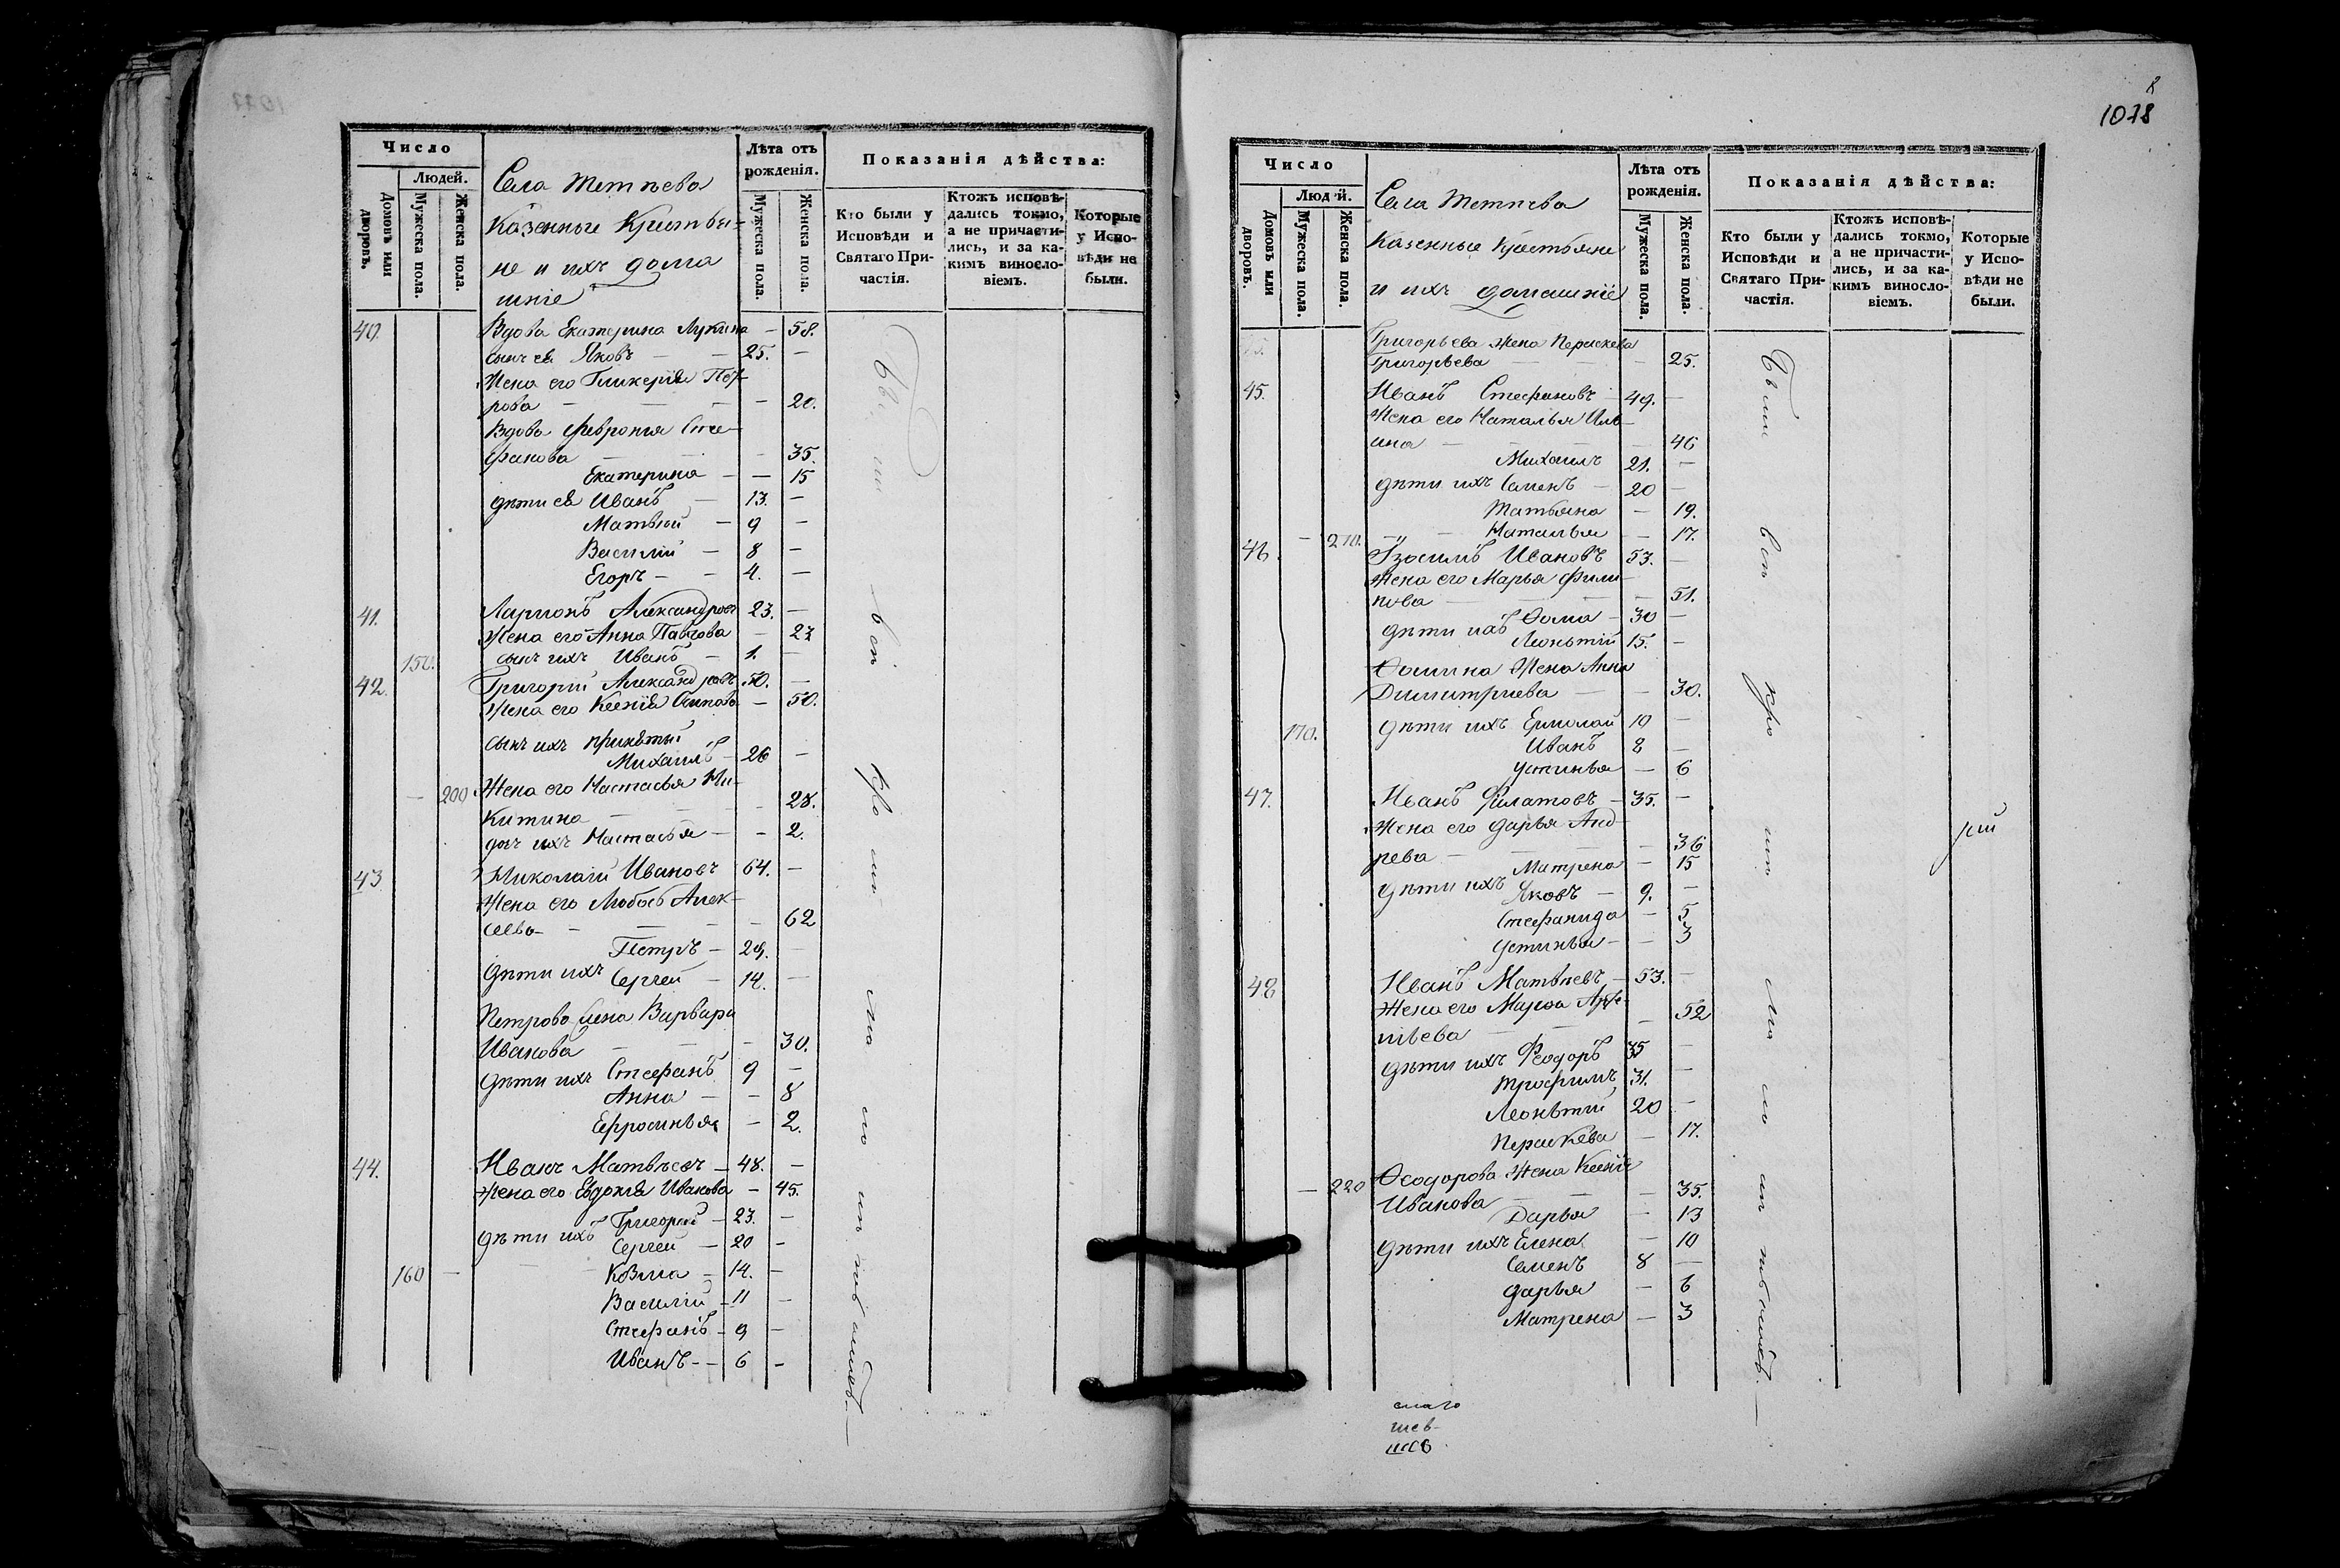 Число
Людей.
Домовъ или дворовъ.
Мужеска пола.
Женска пола.
Села Тетпева
Казенные Крестья-
не и ихъ дома
шніе
Лѣта отъ рожденія.
Мужеска пола.
Женска пола.
Показанія дѣйства:
Кто были у Исповѣди и Святаго При-частія.
Ктожъ исповѣ-дались токмо, а не причасти-лись, и за ка-кимъ винословіемъ.
Которые у Испо-вѣди не были.
40. Вдова Екатерина Лукина — 58.
сынъ ея Яковъ — — 25. —
Жена его Гликерія Пет
рова — — — — 20.
Вдова Февронья Сте-
фанова — — — 35.
Екатерина — — 15
дѣти ея Иванъ — 13. —
Матвѣй — 9 —
Василій — 8 —
Егоръ — — 4. —
41. Ларионъ Александровъ 23. —
Жена его Анна Павлова — 23
150. сынъ ихъ Иванъ — 1. —
42. Григорій Александровъ 50. —
Жена его Ксенія — 50.
сынъ ихъ пріемный
Михаилъ — 26 —
— 200 Жена его Настасья Ни-
китина — — 28.
дочь ихъ Настасья — — 2.
43 Николай Ивановъ 64. —
Жена его Любовь Алек-
сеева — — — — 62
Петръ — 29. —
дѣти ихъ Сергей — 14. —
Петрова жена Варвара
Иванова — — — 30.
дѣти ихъ Стефанъ 9 —
Анна — — 8
Ефросинья — 2.
44. Иванъ Матвѣевъ — 48. —
Жена его Евдокія Иванова — 45.
дѣти ихъ Григорій — 23. —
Сергей — 20 —
160 — Козма — 14. —
Василій — 11 —
Стефанъ — 9 —
Иванъ — — 6 —
1078
Число
Людей.
Домовъ или дворовъ.
Мужеска пола.
Женска пола.
Села Тетпева
Казенные Крестьяне
и ихъ домашніе
Лѣта отъ рожденія.
Мужеска пола.
Женска пола.
Показанія дѣйства:
Кто были у Исповѣди и Святаго При-частія.
Ктожъ исповѣ-дались токмо, а не причасти-лись, и за ка-кимъ винословіемъ.
Которые у Испо-вѣди не были.
Григорьева жена Пераскева
Григорьева — — — 25.
45. Иванъ Стефановъ — 49. —
Жена его Наталья Иль-
ина — — — — 46
Михаилъ 21. —
дѣти ихъ Семенъ — 20 —
Татьяна — 19.
— 210. Наталья — 17.
46. Изосимъ Ивановъ 53. —
Жена его Марья Фили-
пова — — — 51.
дѣти ихъ Ѳома — 30 —
Леонтій 15. —
Ѳомина Жена Анна
Димитриева — — 30.
170. дѣти ихъ Ермолай 10 —
Иванъ 8 —
Устинья — 6
47. Иванъ Филатовъ — 35. —
Жена его Дарья Анд-
реева — — — 36
Матрена — 15
дѣти ихъ Яковъ — 9. —
Стефанида — 5
Устинья — — 3
48 Иванъ Матвѣевъ — 53. —
Жена его Марѳа
— — — 52
дѣти ихъ Феодоръ 35 —
Трофимъ 31. —
Леонтій 20 —
Пераскева — 17.
Ѳеодорова Жена Ксенія
— 220 Иванова — — — 35.
Дарья — 13
дѣти ихъ Елена — 10
Семенъ 8 —
Дарья — 6
Матрена — 3